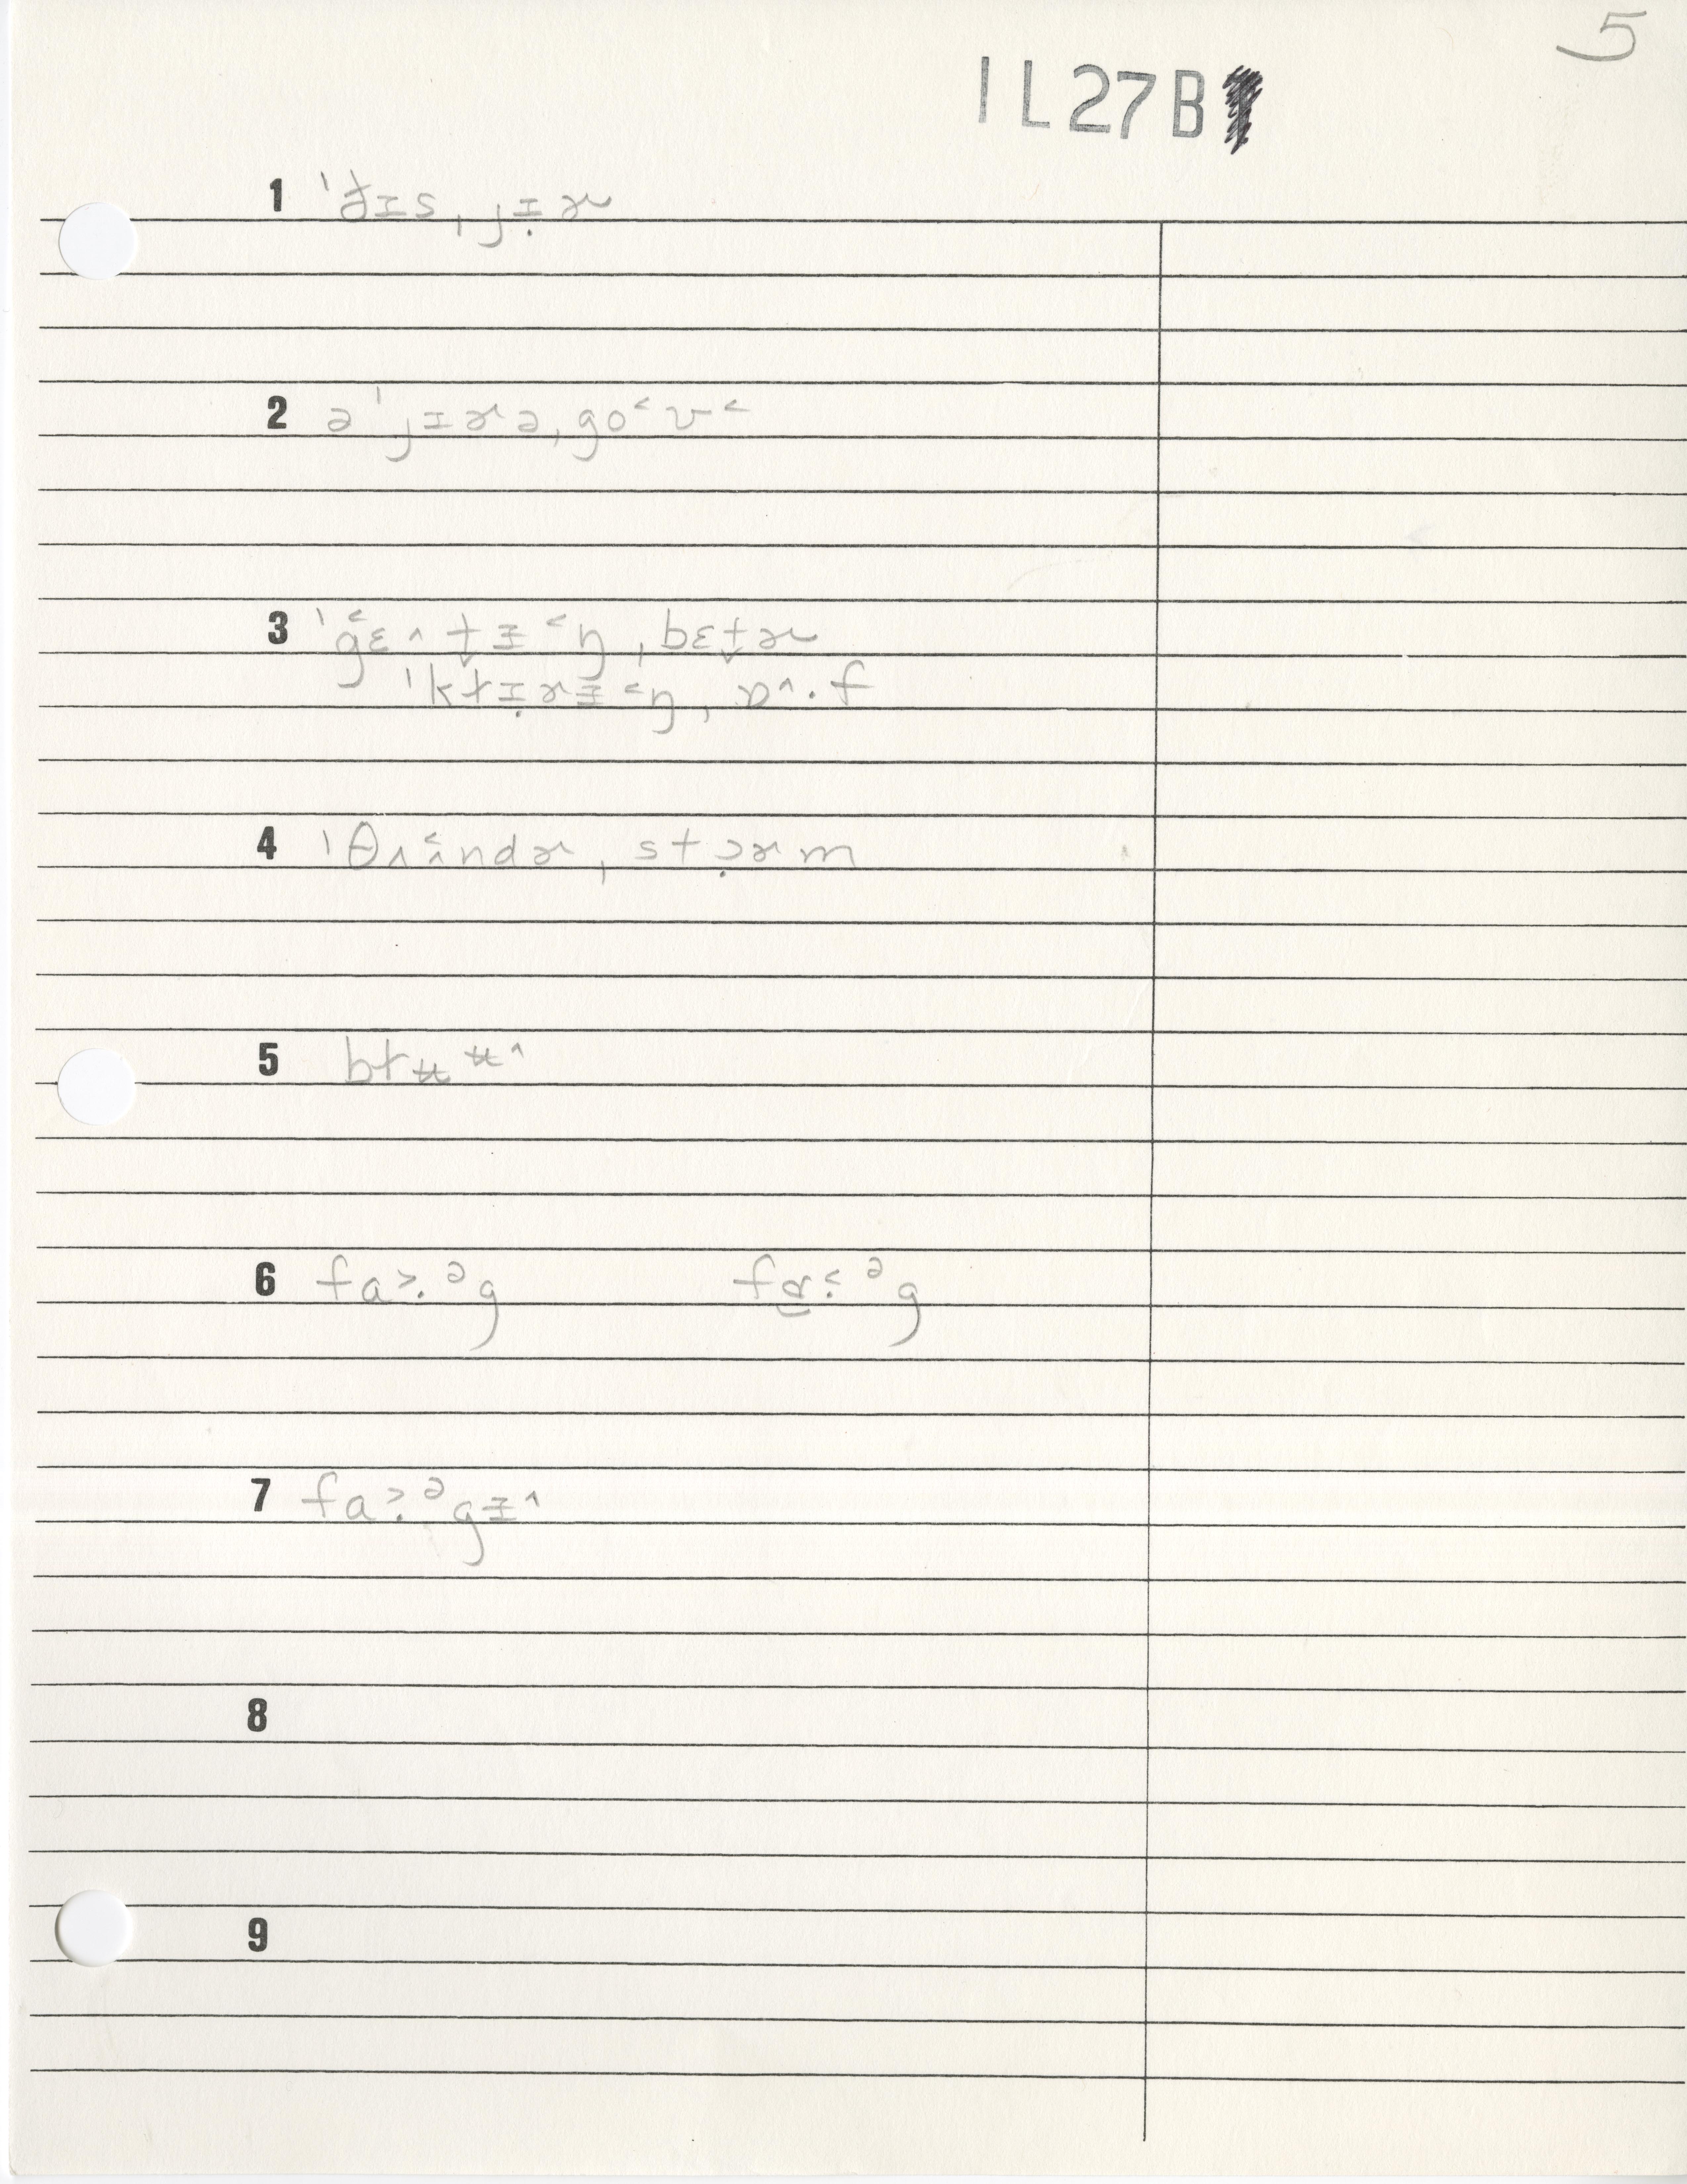 5
IL27B
1 ˈðɪs ˌjɪ̣ɚ
2 ə ˈjɪɚə ˌgo˂ʊ˂
3 ˈg˂ɛ˄t̬ᵻ˂ŋ ˌbɛt̬ɚ
ˈklɪ̣ɚᵻ˂ŋ ˌɒ˄·f
4 ˈθʌ˂˄ndɚ ˌstɔ̣ɚm
5 blʉʉ˄
6 fa˃·ᵊg fɑ˂·ᵊg
7 fa˃·ᵊgᵻ˄
8
9